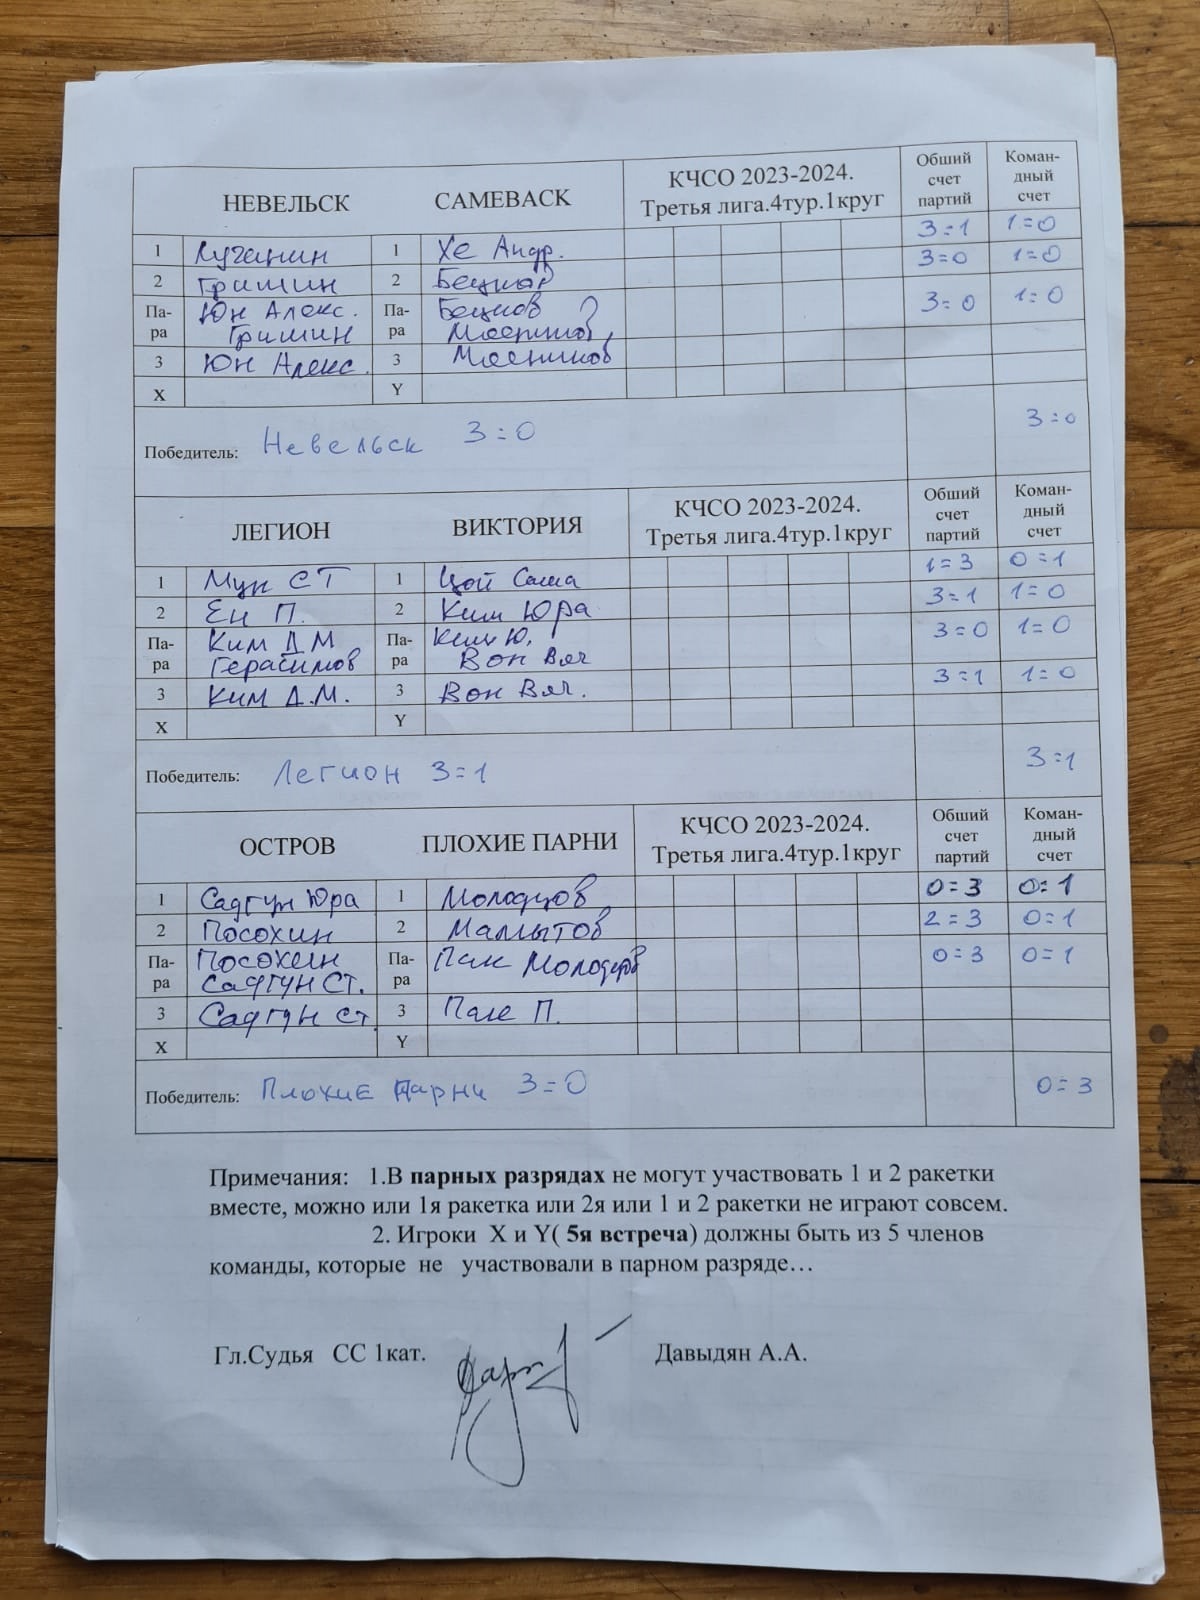 НЕВЕЛЬСК САМЕBACK КЧСО 2023-2024. Третья лига.4тур.1круг Обший счет партий Коман-дный счет
1 Лучанин 1 Хе Андр. 3=1 1=0
2 Гришин 2 3=0 1=0
Па-ра Юн Алекс. Па-ра 3=0 1=0
Гришин
3 Юн Алекс. 3
X Y
Победитель: Невельск 3=0 3=0
ЛЕГИОН ВИКТОРИЯ КЧСО 2023-2024. Третья лига.4тур.1круг Обший счет партий Коман-дный счет
1 Мун СТ 1 Цой Саша 1=3 0=1
2 Ен П. 2 Ким Юра 3=1 1=0
Па-ра Ким Д М Па-ра Ким Ю. 3=0 1=0
Герасимов Вон Вяч
3 Ким Д.М. 3 Вон Вяч. 3=1 1=0
X Y
Победитель: Легион 3=1 3=1
ОСТРОВ ПЛОХИЕ ПАРНИ КЧСО 2023-2024. Третья лига.4тур.1круг Обший счет партий Коман-дный счет
1 Садгун Юра 1 Молодцов 0=3 0=1
2 Посохин 2 Мамытов 2=3 0=1
Па-ра Посохин Па-ра Пак Молодцов 0=3 0=1
Садгун Ст.
3 Садгун Ст 3 Пак П.
X Y
Победитель: Плохие парни 3=0 0=3
Примечания: 1.В парных разрядах не могут участвовать 1 и 2 ракетки
вместе, можно или 1я ракетка или 2я или 1 и 2 ракетки не играют совсем.
2. Игроки X и Y( 5я встреча) должны быть из 5 членов
команды, которые не участвовали в парном разряде…
Гл.Судья СС 1кат. Давыдян А.А.